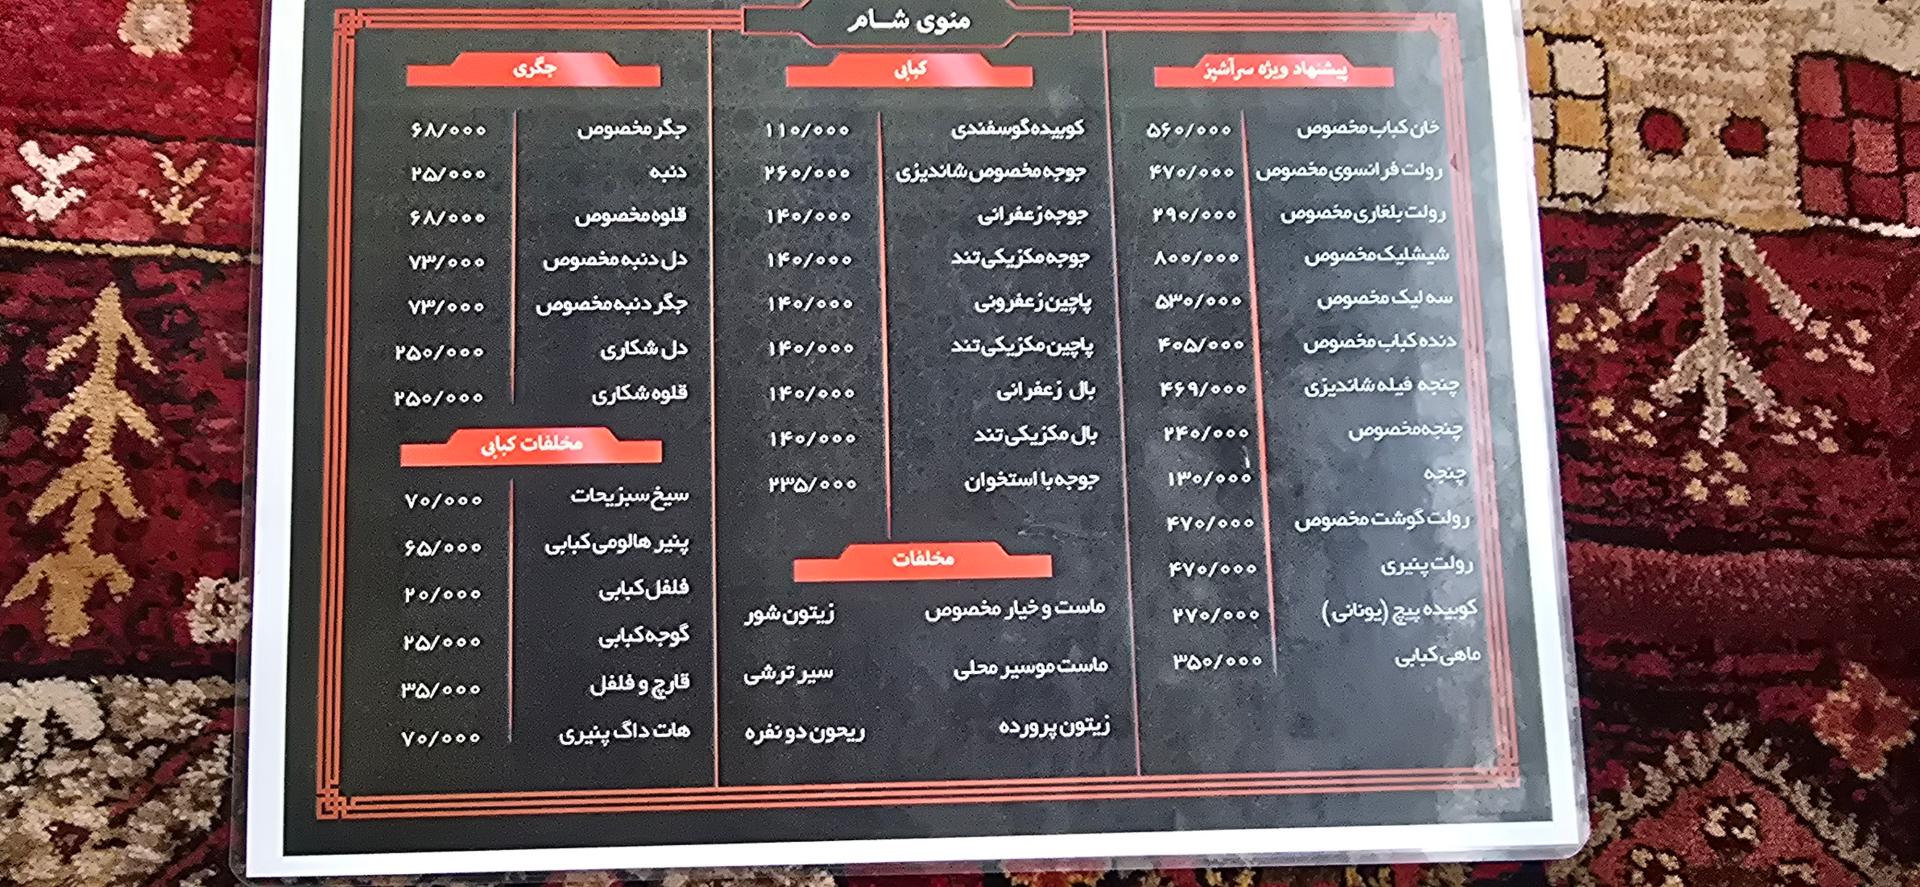 منوی شـــام
پیشنهاد ویژه سرآشپز
خان کباب مخصوص ۵۶۰/۰۰۰
رولت فرانسوی مخصوص ۴۷۰/۰۰۰
رولت بلغاری مخصوص ۲۹۰/۰۰۰
شیشلیک مخصوص ۸۰۰/۰۰۰
سه لیک مخصوص ۵۳۰/۰۰۰
دنده کباب مخصوص ۴۰۵/۰۰۰
چنجه فیله شاندیزی ۴۶۹/۰۰۰
چنجه مخصوص ۲۴۰/۰۰۰
چنجه ۱۳۰/۰۰۰
رولت گوشت مخصوص ۴۷۰/۰۰۰
رولت پنیری ۴۷۰/۰۰۰
کوبیده پیچ (یونانی) ۲۷۰/۰۰۰
ماهی کبابی ۳۵۰/۰۰۰
کبابی
کوبیده گوسفندی ۱۱۰/۰۰۰
جوجه مخصوص شاندیزی ۲۶۰/۰۰۰
جوجه زعفرانی ۱۴۰/۰۰۰
جوجه مکزیکی تند ۱۴۰/۰۰۰
پاچین زعفرونی ۱۴۰/۰۰۰
پاچین مکزیکی تند ۱۴۰/۰۰۰
بال زعفرانی ۱۴۰/۰۰۰
بال مکزیکی تند ۱۴۰/۰۰۰
جوجه با استخوان ۲۳۵/۰۰۰
مخلفات
ماست و خیار مخصوص زیتون شور
ماست موسیر محلی سیر ترشی
زیتون پرورده ریحون دو نفره
جگری
جگر مخصوص ۶۸/۰۰۰
دنبه ۲۵/۰۰۰
قلوه مخصوص ۶۸/۰۰۰
دل دنبه مخصوص ۷۳/۰۰۰
جگر دنبه مخصوص ۷۳/۰۰۰
دل شکاری ۲۵۰/۰۰۰
قلوه شکاری ۲۵۰/۰۰۰
مخلفات کبابی
سیخ سبزیحات ۷۰/۰۰۰
پنیر هالومی کبابی ۶۵/۰۰۰
فلفل کبابی ۲۰/۰۰۰
گوجه کبابی ۲۵/۰۰۰
قارچ و فلفل ۳۵/۰۰۰
هات داگ پنیری ۷۰/۰۰۰